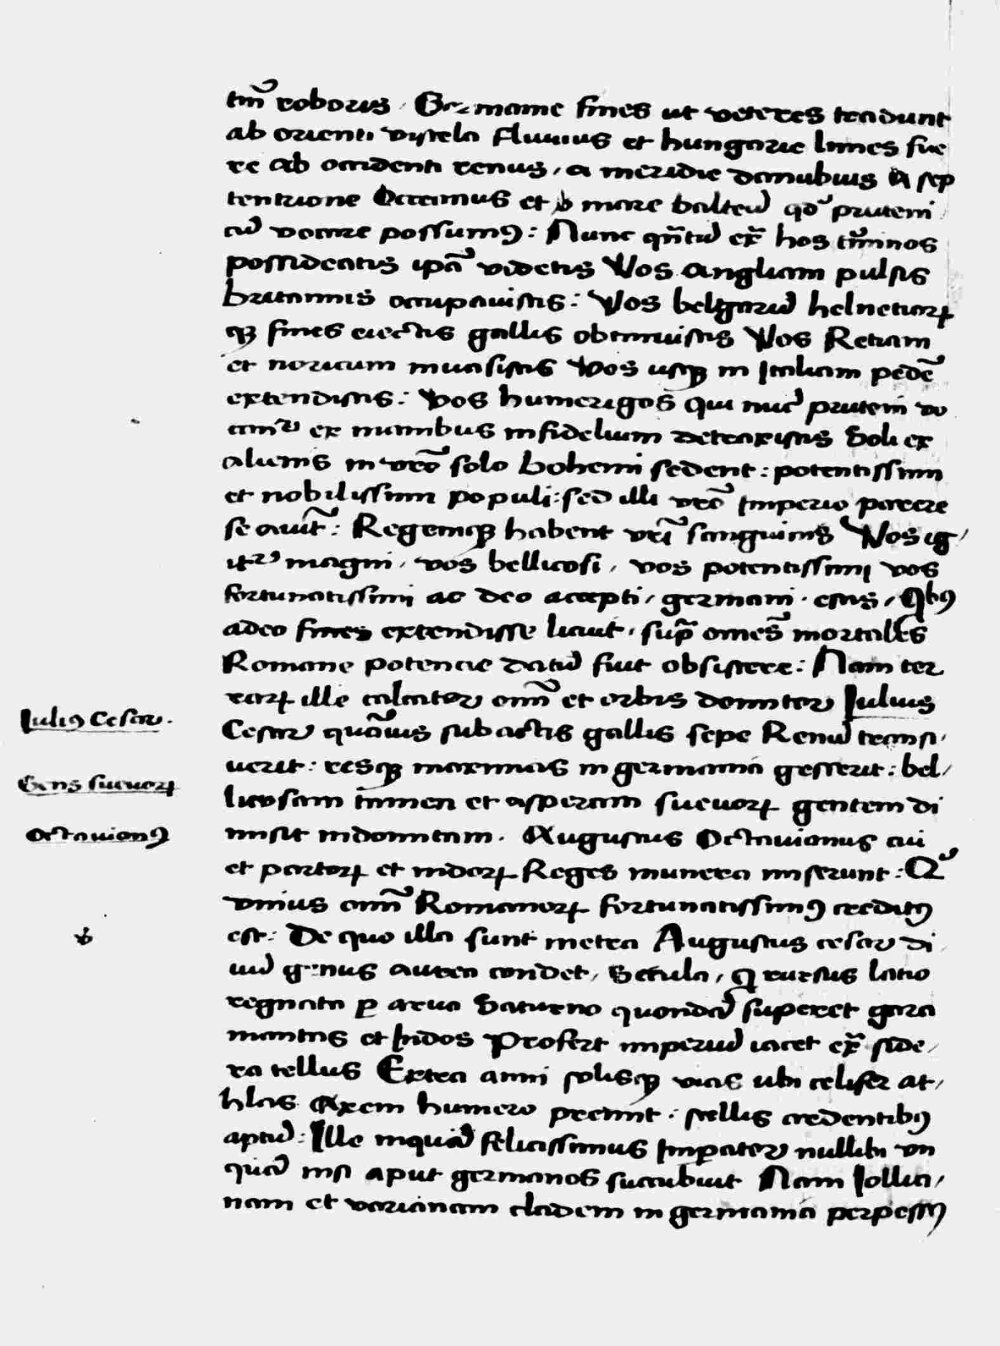 tm̄ roboris / Germanie fines ut veteres tradunt
ab orienti vistela fluuius et hungarie limes fue
re ab occidenti renus / a meridie danubius A sep
tentrione Occeanus et mare balteū qd̛ pruteni /
cū vocare possumꝯ : Nunc qn̄tū ex̄ hos tm̄inos
possideatis ip̄a videtis Vos angliam pulsis
britannis occupauistis : Vos belgarū heluetiorꝝ
qꝫ fines eiectis gallis obtinuistis Vos Retiam
et noricum inuasistis Vos usqꝫ in Italiam pedē
extendistis : Vos humerigos qui nūc pruteni vo
cant̛ ex manibus infidelium detraxistis Soli ex
alienis in vr̄o solo bohemi sedent : potentissimi
et nobilissimi populi : sed illi vr̄o Imperio parere
se aiūt : Regemqꝫ habent vr̄i sanguinis Vos ig /
it̛ magni / vos bellicosi / vos potentissimi vos
fortunatissimi ac deo accepti / germani · estis / Qbꝯ
adeo fines extendisse licuit · sup̄ om̄es mortales
Romane potencie datū fuit obsistere : Nam ter
rarꝝ ille calcator om̄i et orbis domitor Iulius
Iuliꝯ Cesar .
Cesar quāuis subactis gallis sepe Renū transi /
uerit : resqꝫ maximas in germania gesserit : bel /
Gens sueuorꝝ
licosam tamen et asperam sueuorꝝ gentem di
Octauionꝯ
misit indomitam . Augustus Octauianus cui
et partorꝝ et indorꝝ Reges munera miserunt : Q̛
vnius om̄i Romanorꝝ fortunatissimꝯ creditꝯ
est : De quo illa sunt metra Augustus cesar di /
uū genus aurea condet / Secula / q rursus latio
regnata ꝑ arua Saturno quondā super et gara
mantas et Indos Profert imperiū iacet ex̄ side /
ra tellus Extra anni solisqꝫ vias ubi celifer at /
hlas Axem humero premit · stellis credentibꝯ
aptū : Ille inquā felicissimus Imperator nullibi vn
quā nisi aput germanos succubuit Nam lollia /
nam et varianam cladem in germania perpessꝯ